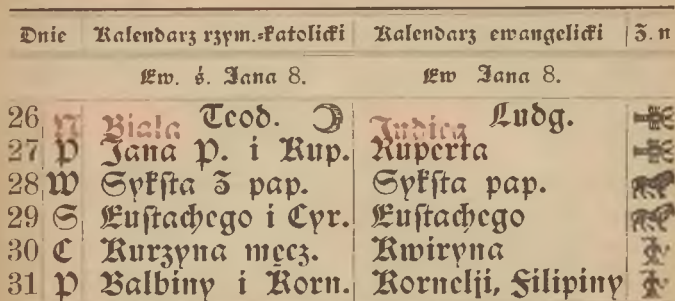 Dnie Kalendarz rzym.-katolicki Kalendarz ewangelicki Z. n
Ew. ś. Jana 8. Ew Jana 8.
26 N Biała Teod. Judica Ludg.
27 P Jana P. i Rup. Ruperta
28 W Sykſta 3 pap. Sykſta pap.
29 S Euſtachego i Cyr. Euſtachego
30 C Kurzyna męcz. Kwiryna
31 P Balbiny i Korn. Kornelji, Filipiny